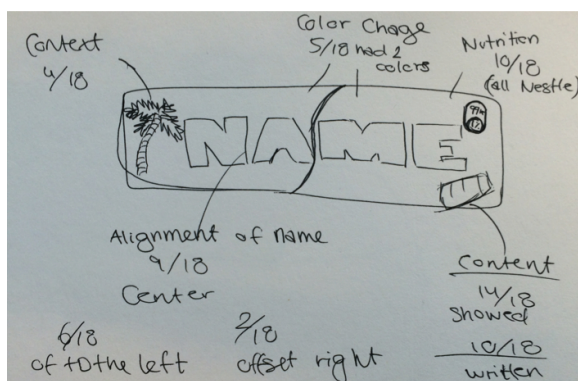 Context
4/18
Color Chage
5/18 had 2
colors
Nutrition
10/18
(all Nestle)
NAME
Alignment of name
9/18
Center
6/18
of to the left
2/18
offset right
Content
14/18
showed
10/18
written